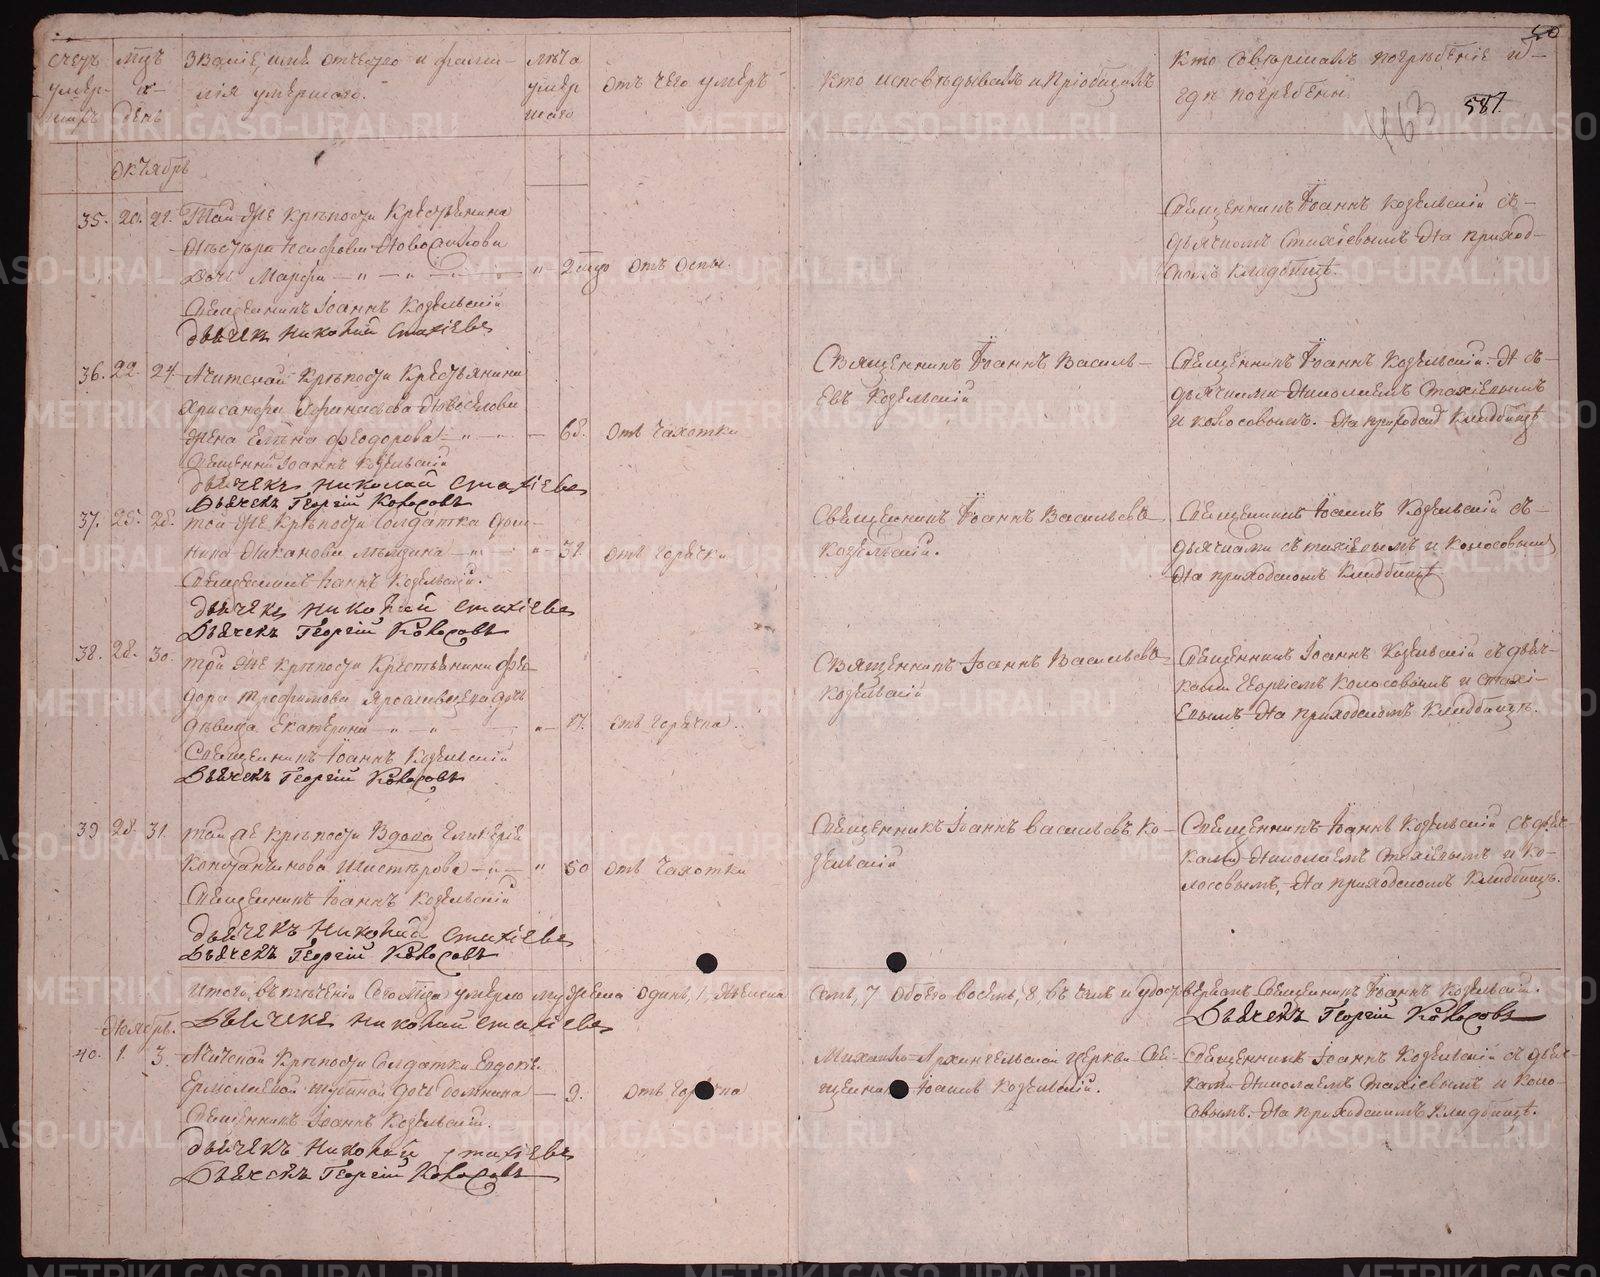 счетъ умер- шихъ
мцъ и день
Званіе, имя отчество и фами-
лія умершаго.
лѣта умер шаго
отъ чего умеръ
Кто исповѣдывалъ и пріобщалъ
Кто совершалъ погребеніе и
гдѣ погребенъ
50
587
463
октябрь
35. 20. 21. Той же крѣпости Крестьянина
дочь Марфа 2 отъ оспы.
Священникъ Іоаннъ Козельскій
дьячекъ Николай Стахіевъ
Священникъ Іоаннъ Козельскій съ
дьячкомъ Стахіевымъ на приход-
скомъ кладбищѣ.
36. 22. 24. Ачитской крѣпости Крестьянина
Хрисанфа Афанасьева Новоселова
жена Елена Феодорова 68. отъ чахотки
Священникъ Іоаннъ Козельскій
дьячекъ Николай Стахіевъ
Дьячекъ Георгій Колосовъ
Священникъ Іоаннъ Василь-
евъ Козельскій
Священникъ Іоаннъ Козельскій съ
дьячками Николаемъ Стахіевымъ
и Колосовымъ. На приходск кладбищѣ
37. 25. 28. той же крѣпости Солдатка Дом-
ника 39. отъ горячки
Священникъ Іоаннъ Козельскій.
дьячекъ Николай Стахіевъ
Дьячекъ Георгій Колосовъ
Священникъ Іоаннъ Васильевъ
Козельскій.
Священникъ Іоаннъ Козельскій съ
дьячками Стахіевымъ и Колосовымъ
На приходскомъ кладбищѣ
38. 28. 30. той же крѣпости Крестьянина Фео-
дора Трофимова дочь
дѣвица Екатерина 17. отъ горячки.
Священникъ Іоаннъ Козельскій
Дьячекъ Георгій Колосовъ
Священникъ Іоаннъ Васильевъ
Козельскій
Священникъ Іоаннъ Козельскій съ дьяч-
ками Георгіемъ Колосовымъ и Стахі-
евымъ На приходскомъ кладбищѣ.
39 28. 31. той же крѣпости Вдова Гликерія
Константинова 50 отъ чахотки
Священникъ Іоаннъ Козельскій
дьячекъ Николай Стахіевъ
Дьячекъ Георгій Колосовъ
Священникъ Іоаннъ Васильевъ Ко-
зельскій
Священникъ Іоаннъ Козельскій съ дьяч-
ками Николаемъ Стахіевымъ и Ко-
лосовымъ, На приходскомъ кладбищѣ.
Итого въ теченіи сего мца умерло мужеска одинъ, 1, женска семь, 7 обоего восемь, 8, въ чемъ и удостовѣряемъ Священникъ Іоаннъ Козельскій.
Дьячекъ Николай Стахіевъ
Дьячекъ Георгій Колосовъ
Ноябрь.
40. 1. 3. Ачитской крѣпости Солдатки
Ермолаевой дочь Домника 9. отъ горячка
Священникъ Іоаннъ Козельскій.
дьячекъ Николай Стахіевъ
Дьячекъ Георгій Колосовъ
Михаило-Архангельской церкви Свя-
щенникъ Іоаннъ Козельскій.
Священникъ Іоаннъ Козельскій съ дьяч-
ками Николаемъ Стахіевымъ и Коло-
совымъ. На приходскомъ кладбищѣ.
METRIKI.GASO-URAL.RU